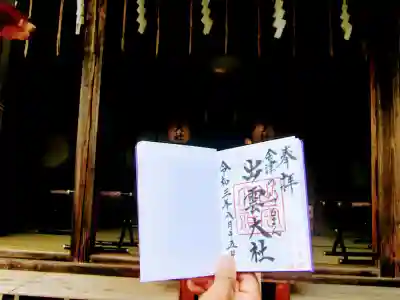 奉拝
会津
出雲大社
令和三年八月十五日